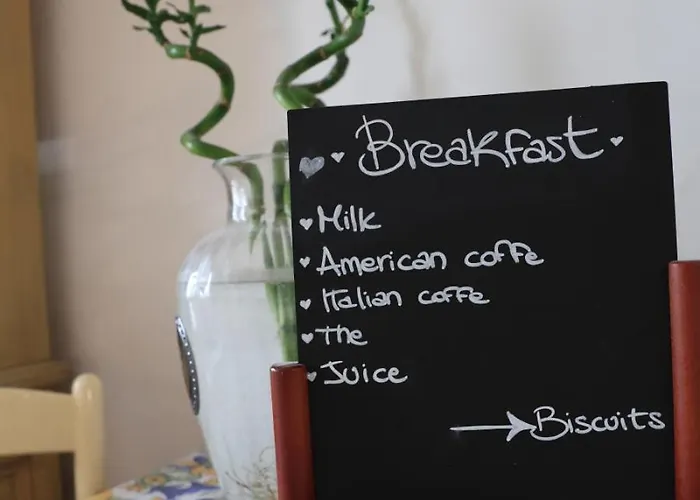 Breakfast
Milk
American coffe
Italian coffe
The
Juice
Biscuits